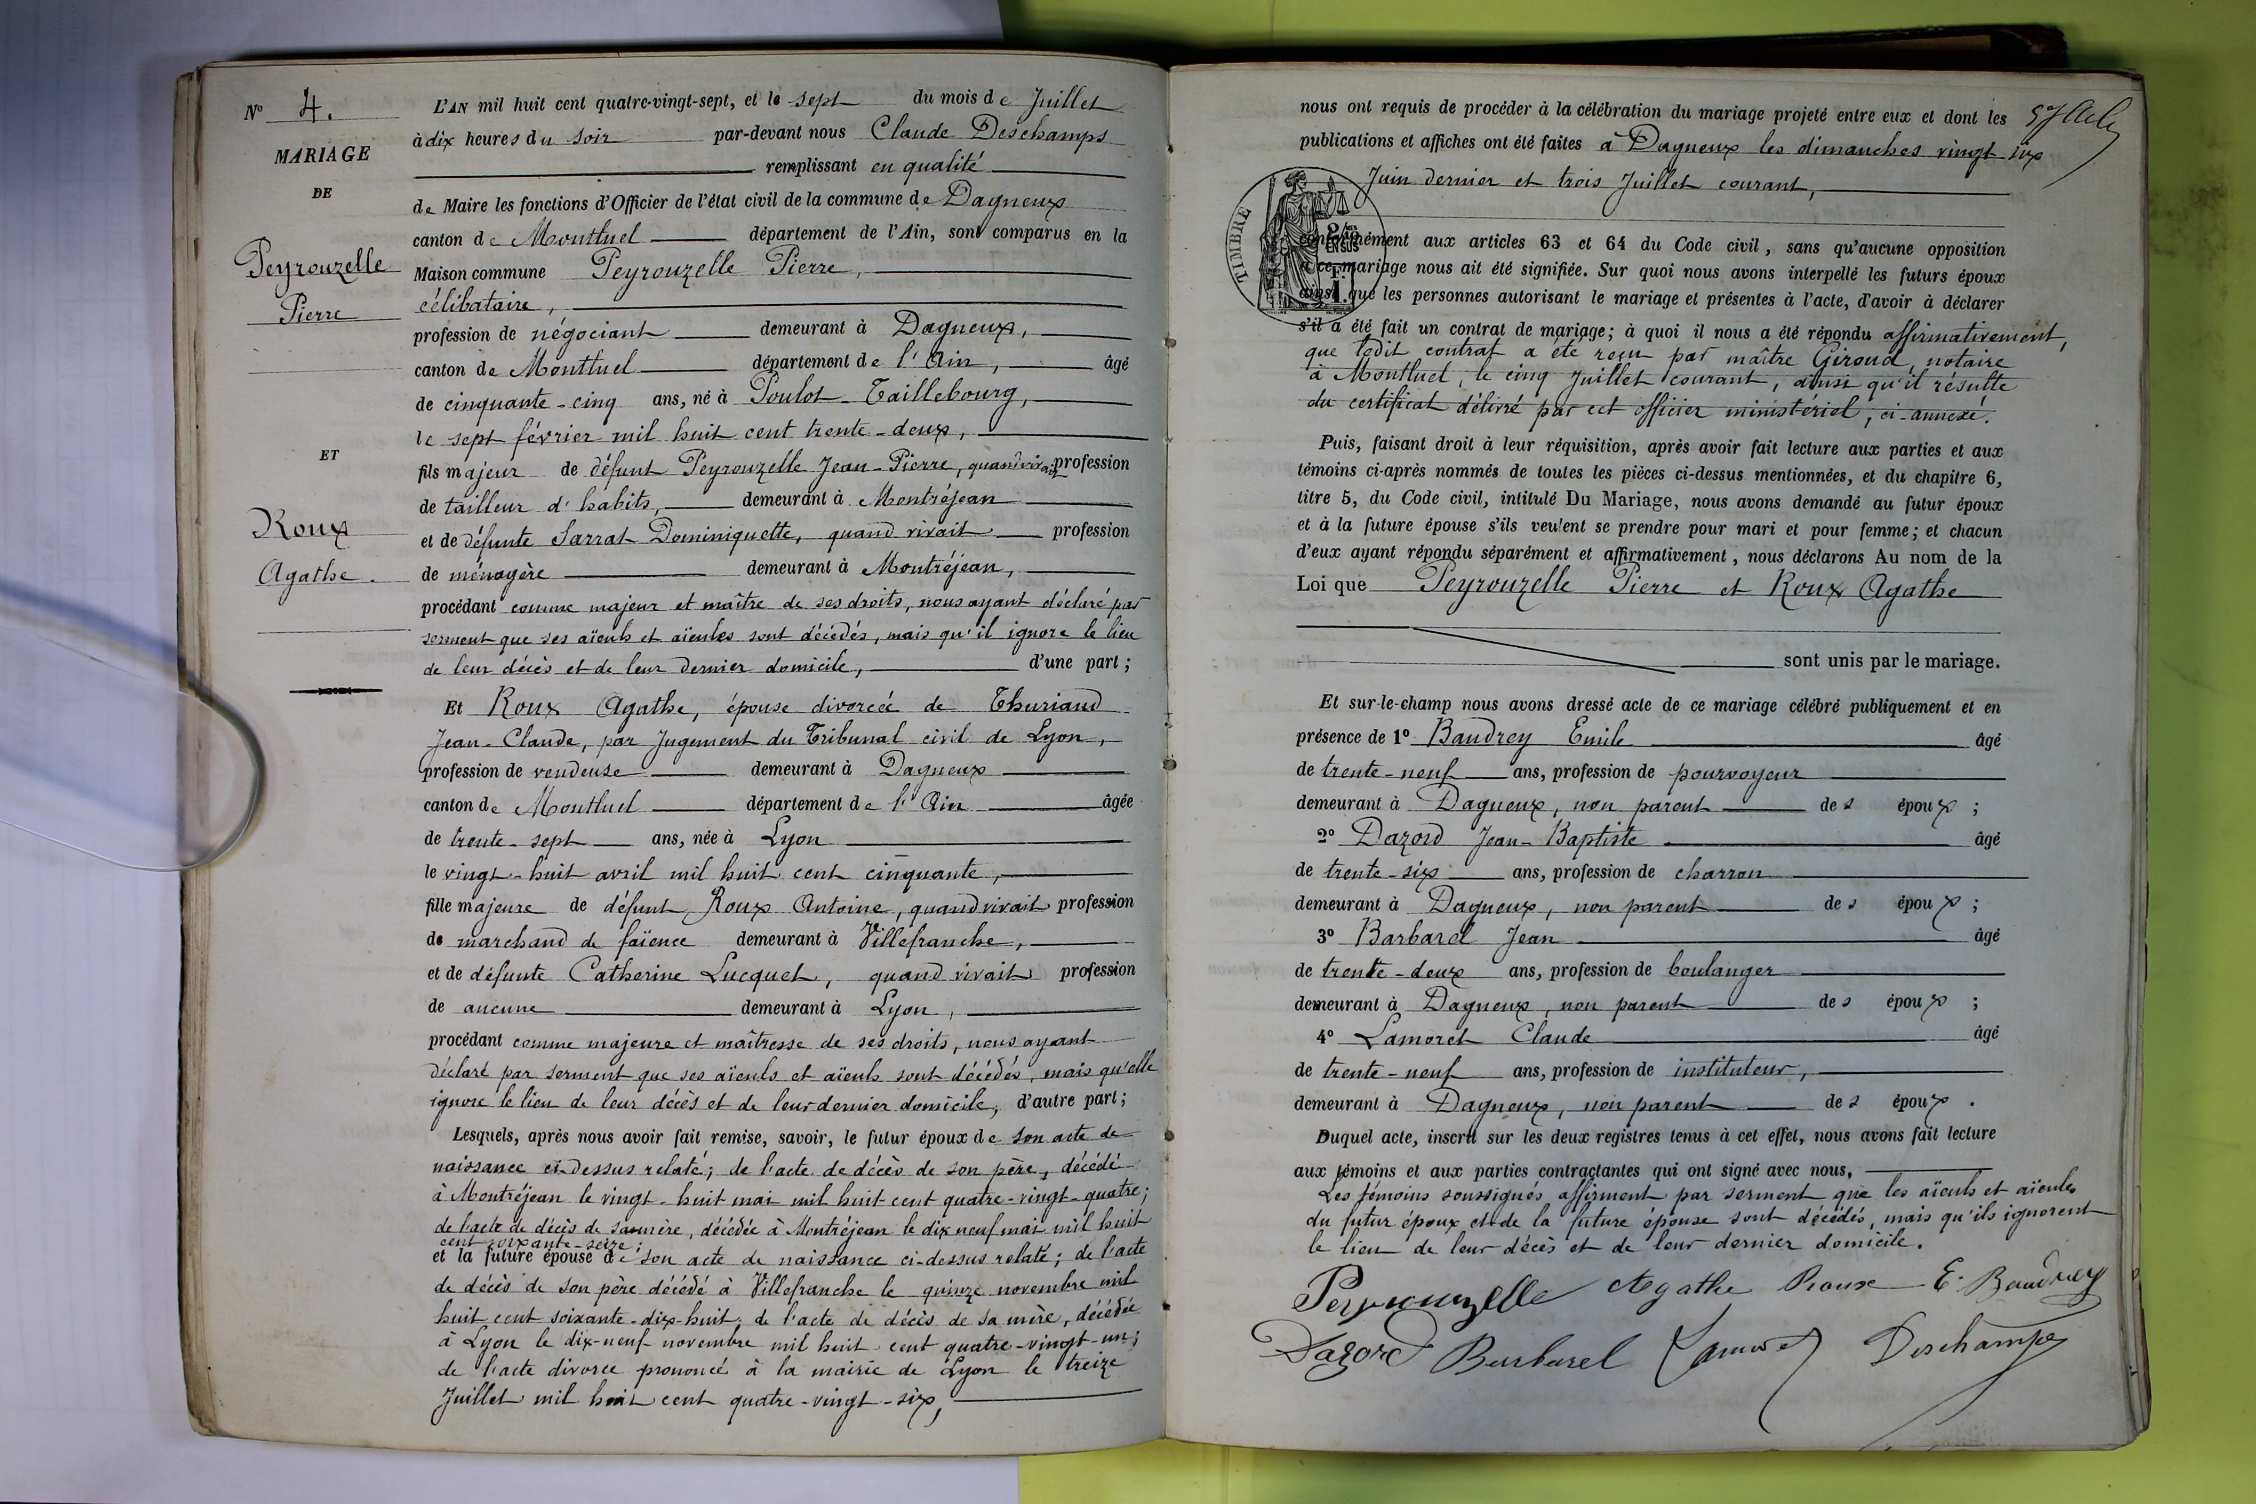 No 4.
MARIAGE
DE
Peyrouzelle
Pierre
ET
Roux
Agathe.
L'AN mil huit cent quatre-vingt-sept, et le sept du mois de Juillet
à dix heures du soir par-devant nous Claude Deschamps
remplissant en qualité
de Maire les fonctions d'Officier de l'état civil de la commune de Dagneux
canton de Montluel département de l'Ain, sont comparus en la
Maison commune Peyrouzelle Pierre,
célibataire,
profession de négociant demeurant à Dagneux,
canton de Montluel département de l'Ain, âgé
de cinquante-cinq ans, né à Poulot-Taillebourg,
le sept février mil huit cent trente-deux,
fils majeur de défunt Peyrouzelle Jean-Pierre, quand vivait profession
de tailleur d'habits, demeurant à Montréjean
et de défunte Sarrat Dominiquette, quand vivait profession
de ménagère demeurant à Montréjean,
procédant comme majeur et maître de ses droits, nous ayant déclaré par
serment que ses aïeuls et aïeules sont décédés, mais qu'il ignore le lieu
de leur décès et de leur dernier domicile, d'une part;
Et Roux Agathe, épouse divorcée de Thuriaud
Jean-Claude, par Jugement du Tribunal civil de Lyon,
profession de vendeuse demeurant à Dagneux
canton de Montluel département de l'Ain âgée
de trente-sept ans, née à Lyon
le vingt-huit avril mil huit cent cinquante,
fille majeure de défunt Roux Antoine, quand vivait profession
de marchand de faïence demeurant à Villefranche,
et de défunte Catherine Lucquet, quand vivait profession
de aucune demeurant à Lyon,
procédant comme majeure et maîtresse de ses droits, nous ayant
déclaré par serment que ses aïeuls et aïeuls sont décédés, mais qu'elle
ignore le lieu de leur décès et de leur dernier domicile, d'autre part;
Lesquels, après nous avoir fait remise, savoir, le futur époux de son acte de
naissance ci-dessus relaté; de l'acte de décès de son père, décédé
à Montréjean le vingt-huit mai mil huit cent quatre-vingt-quatre;
de l'acte de décès de sa mère, décédée à Montréjean le dix neuf mai mil huit
cent soixante-seize;
et la future épouse de son acte de naissance ci-dessus relaté; de l'acte
de décès de son père décédé à Villefranche le quinze novembre mil
huit cent soixante-dix-huit; de l'acte de décès de sa mère, décédée
à Lyon le dix-neuf novembre mil huit cent quatre-vingt-un;
de l'acte divorce prononcé à la mairie de Lyon le treize
Juillet mil huit cent quatre-vingt-six,
nous ont requis de procéder à la célébration du mariage projeté entre eux et dont les
publications et affiches ont été faites à Dagneux les dimanches vingt six
Juin dernier et trois Juillet courant,
TIMBRE
conformément aux articles 63 et 64 du Code civil, sans qu'aucune opposition
à ce mariage nous ait été signifiée. Sur quoi nous avons interpellé les futurs époux
ainsi que les personnes autorisant le mariage et présentes à l'acte, d'avoir à déclarer
s'il a été fait un contrat de mariage; à quoi il nous a été répondu affirmativement,
que ledit contrat a été reçu par maître Giroud, notaire
à Montluel, le cinq Juillet courant, ainsi qu'il résulte
du certificat délivré par cet officier ministériel, ci-annexé.
Puis, faisant droit à leur réquisition, après avoir fait lecture aux parties et aux
témoins ci-après nommés de toutes les pièces ci-dessus mentionnées, et du chapitre 6,
titre 5, du Code civil, intitulé Du Mariage, nous avons demandé au futur époux
et à la future épouse s'ils veulent se prendre pour mari et pour femme; et chacun
d'eux ayant répondu séparément et affirmativement, nous déclarons Au nom de la
Loi que Peyrouzelle Pierre et Roux Agathe
sont unis par le mariage.
Et sur-le-champ nous avons dressé acte de ce mariage célébré publiquement et en
présence de 1º Baudrey Emile âgé
de trente-neuf ans, profession de pourvoyeur
demeurant à Dagneux, non parent des époux;
2º Dazord Jean-Baptiste âgé
de trente-six ans, profession de charron
demeurant à Dagneux, non parent des époux;
3º Barbarel Jean âgé
de trente-deux ans, profession de boulanger
demeurant à Dagneux, non parent des époux;
4º Lamoret Claude âgé
de trente-neuf ans, profession de instituteur,
demeurant à Dagneux, non parent des époux.
Duquel acte, inscrit sur les deux registres tenus à cet effet, nous avons fait lecture
aux témoins et aux parties contractantes qui ont signé avec nous.
Les témoins soussignés affirment par serment que les aïeuls et aïeules
du futur époux et de la future épouse sont décédés, mais qu'ils ignorent
le lieu de leur décès et de leur dernier domicile.
Peyrouzelle Agathe Roux E. Baudrey
Dazord Barbarel Lamoret Deschamps